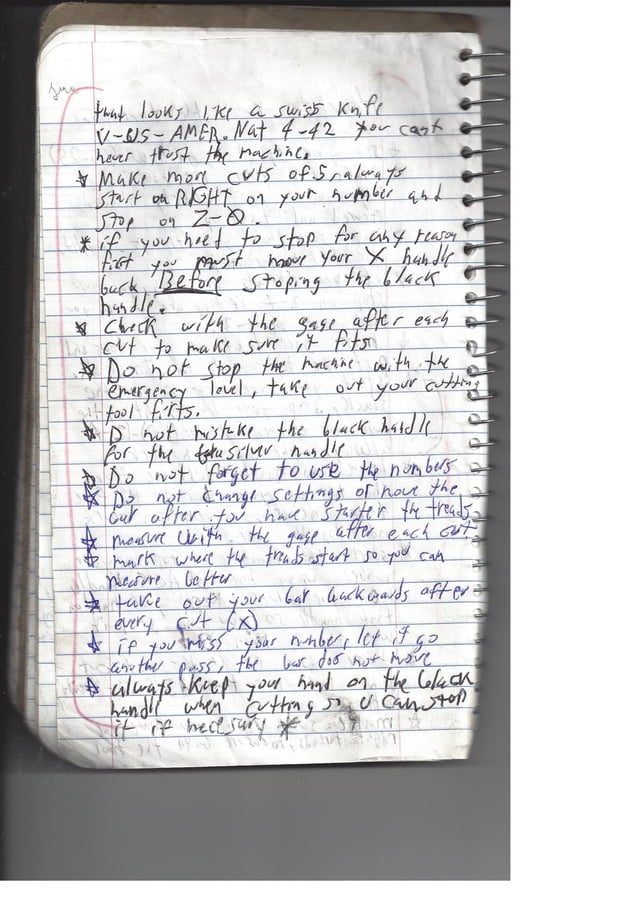 that looks like a swiss knife
V-US-AMER. Nat 4-42 you cant
never trust the machine.
* Make more cuts of 5, always
start on RIGHT on your number and
stop on Z-0.
* if you need to stop for any reason
first you must move your X handle
back Before stoping the black
handle.
* Check with the gage after each
cut to make sure it fits
* Do not stop the machine with the
emergency level, take out your cutting
tool firts.
* D not mistake the black handle
for the silver handle
* Do not forget to use the numbers
* Do not change settings or move the
bar after you have starter the treads
* measure with the gage after each cut
* mark where the treads start so you can
measure better
* take out your bar backwards after
every cut (X)
* if you miss your number, let it go
another pass, the bar doo not move
* always keep your hand on the black
handle when cutting so U can stop
it if necesury *